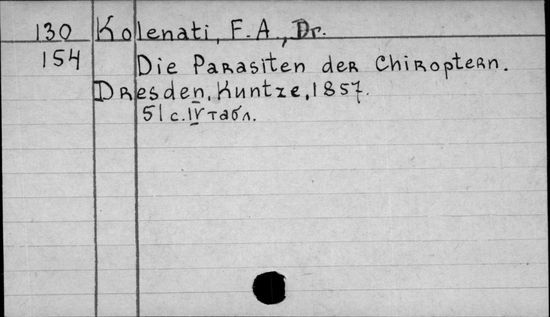 130 Kolenati, F.A., Dr.
154 Die Parasiten der Chiroptern.
Dresden, Kuntze, 1857.
51 с. IV табл.